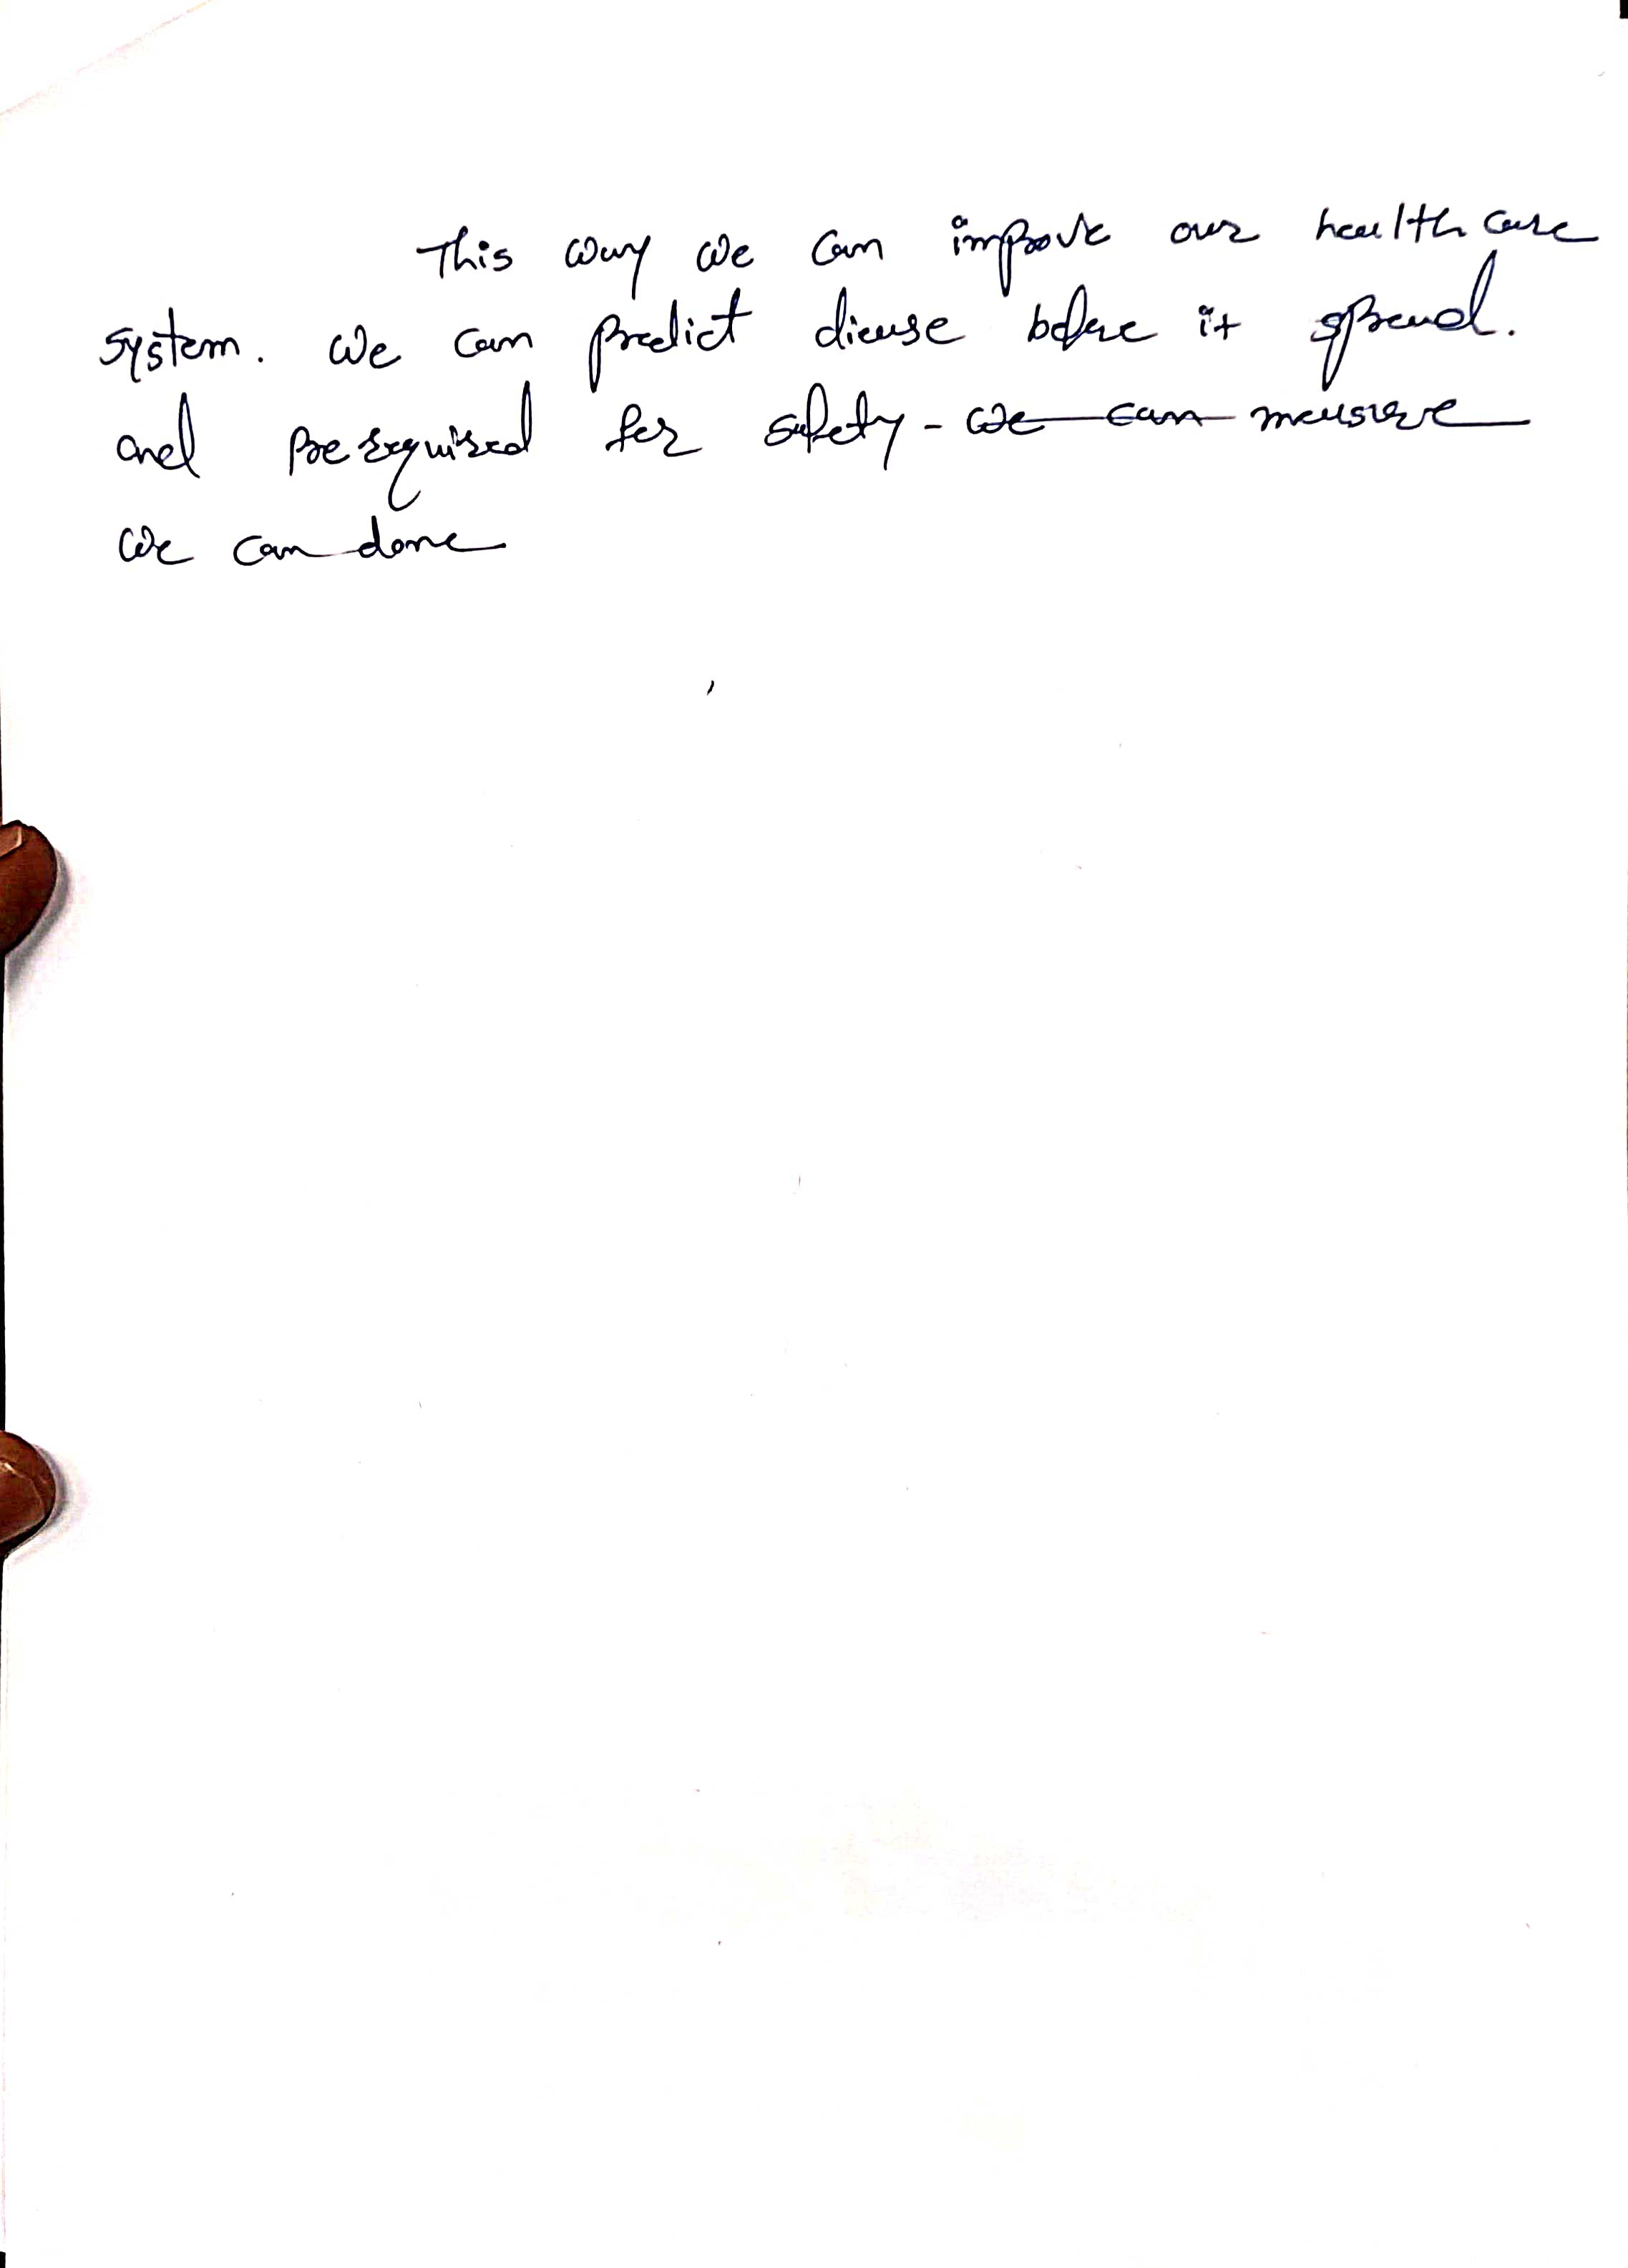 This way we can improve our health care
system. We can predict diease before it spread.
and prerequired for safety - we can measure
we can done